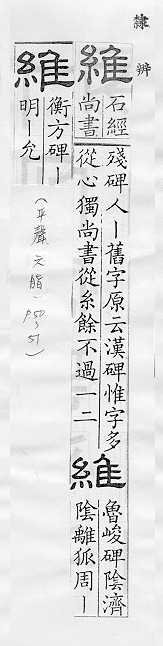 隸辨
維
石經
尚書
殘碑人｜舊字原云漢碑惟字多
從心獨尚書從糸餘不過一二
維
魯峻碑陰濟
陰離狐周｜
維
衡方碑｜
明｜允
(平聲 六脂, P50~51)